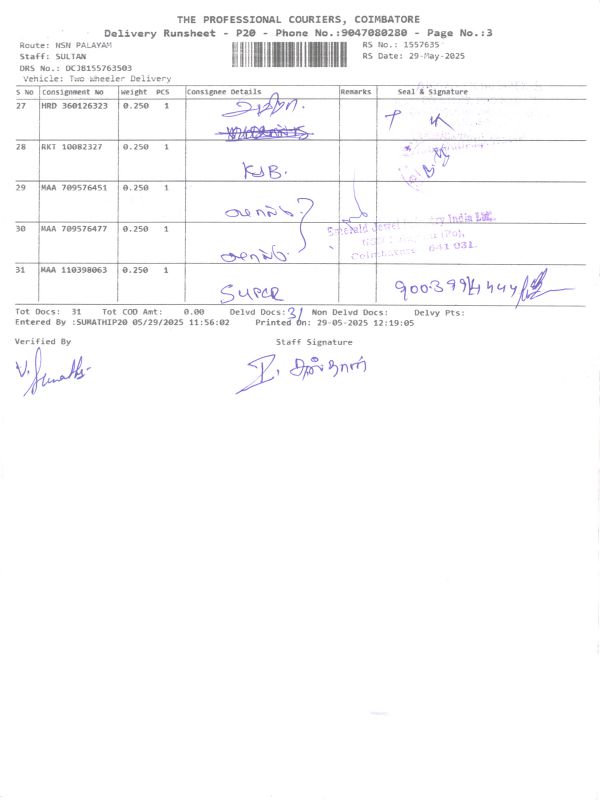 THE PROFESSIONAL COURIERS, COIMBATORE
Delivery Runsheet - P20 - Phone No.:9047080280 - Page No.:3
Route: NSN PALAYAM RS No.: 1557635
Staff: SULTAN RS Date: 29-May-2025
DRS No.: DCJB155763503
Vehicle: Two Wheeler Delivery
S No Consignment No Weight PCS Consignee Details Remarks Seal & Signature
27 HRD 360126323 0.250 1
28 RKT 10082327 0.250 1
KJB.
29 MAA 709576451 0.250 1
30 MAA 709576477 0.250 1
Emerald Jewel Industry India Ltd.
Coimbatore 641 031.
31 MAA 110398063 0.250 1
SUPER
Tot Docs: 31 Tot COD Amt: 0.00 Delvd Docs: 31 Non Delvd Docs: Delvy Pts:
Entered By :SUMATHIP20 05/29/2025 11:56:02 Printed On: 29-05-2025 12:19:05
Verified By Staff Signature
V. Sumathi